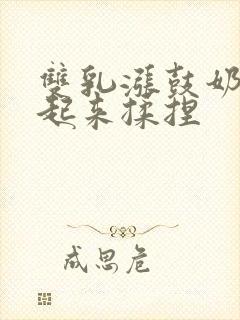 雙乳漲鼓奶
起来揉捏
成思危